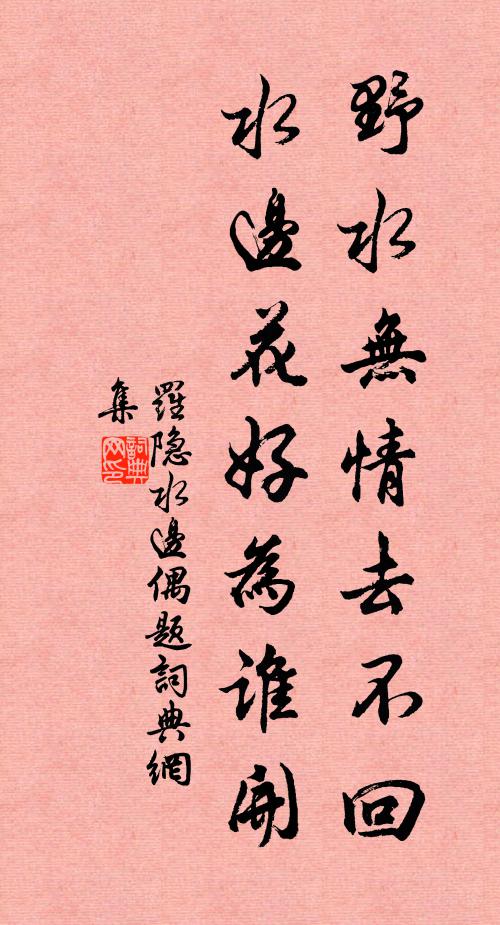 野水無情去不回
水邊花好為誰開
羅隐水邊偶題詞典網
集
詞典網印